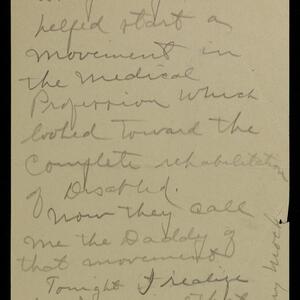 helped start a
movement in
the Medical
Profession which
looked Toward the
Complete rehabilitation
of Disabled.
Now they call
me the Daddy of
that movement
Tonight I realize